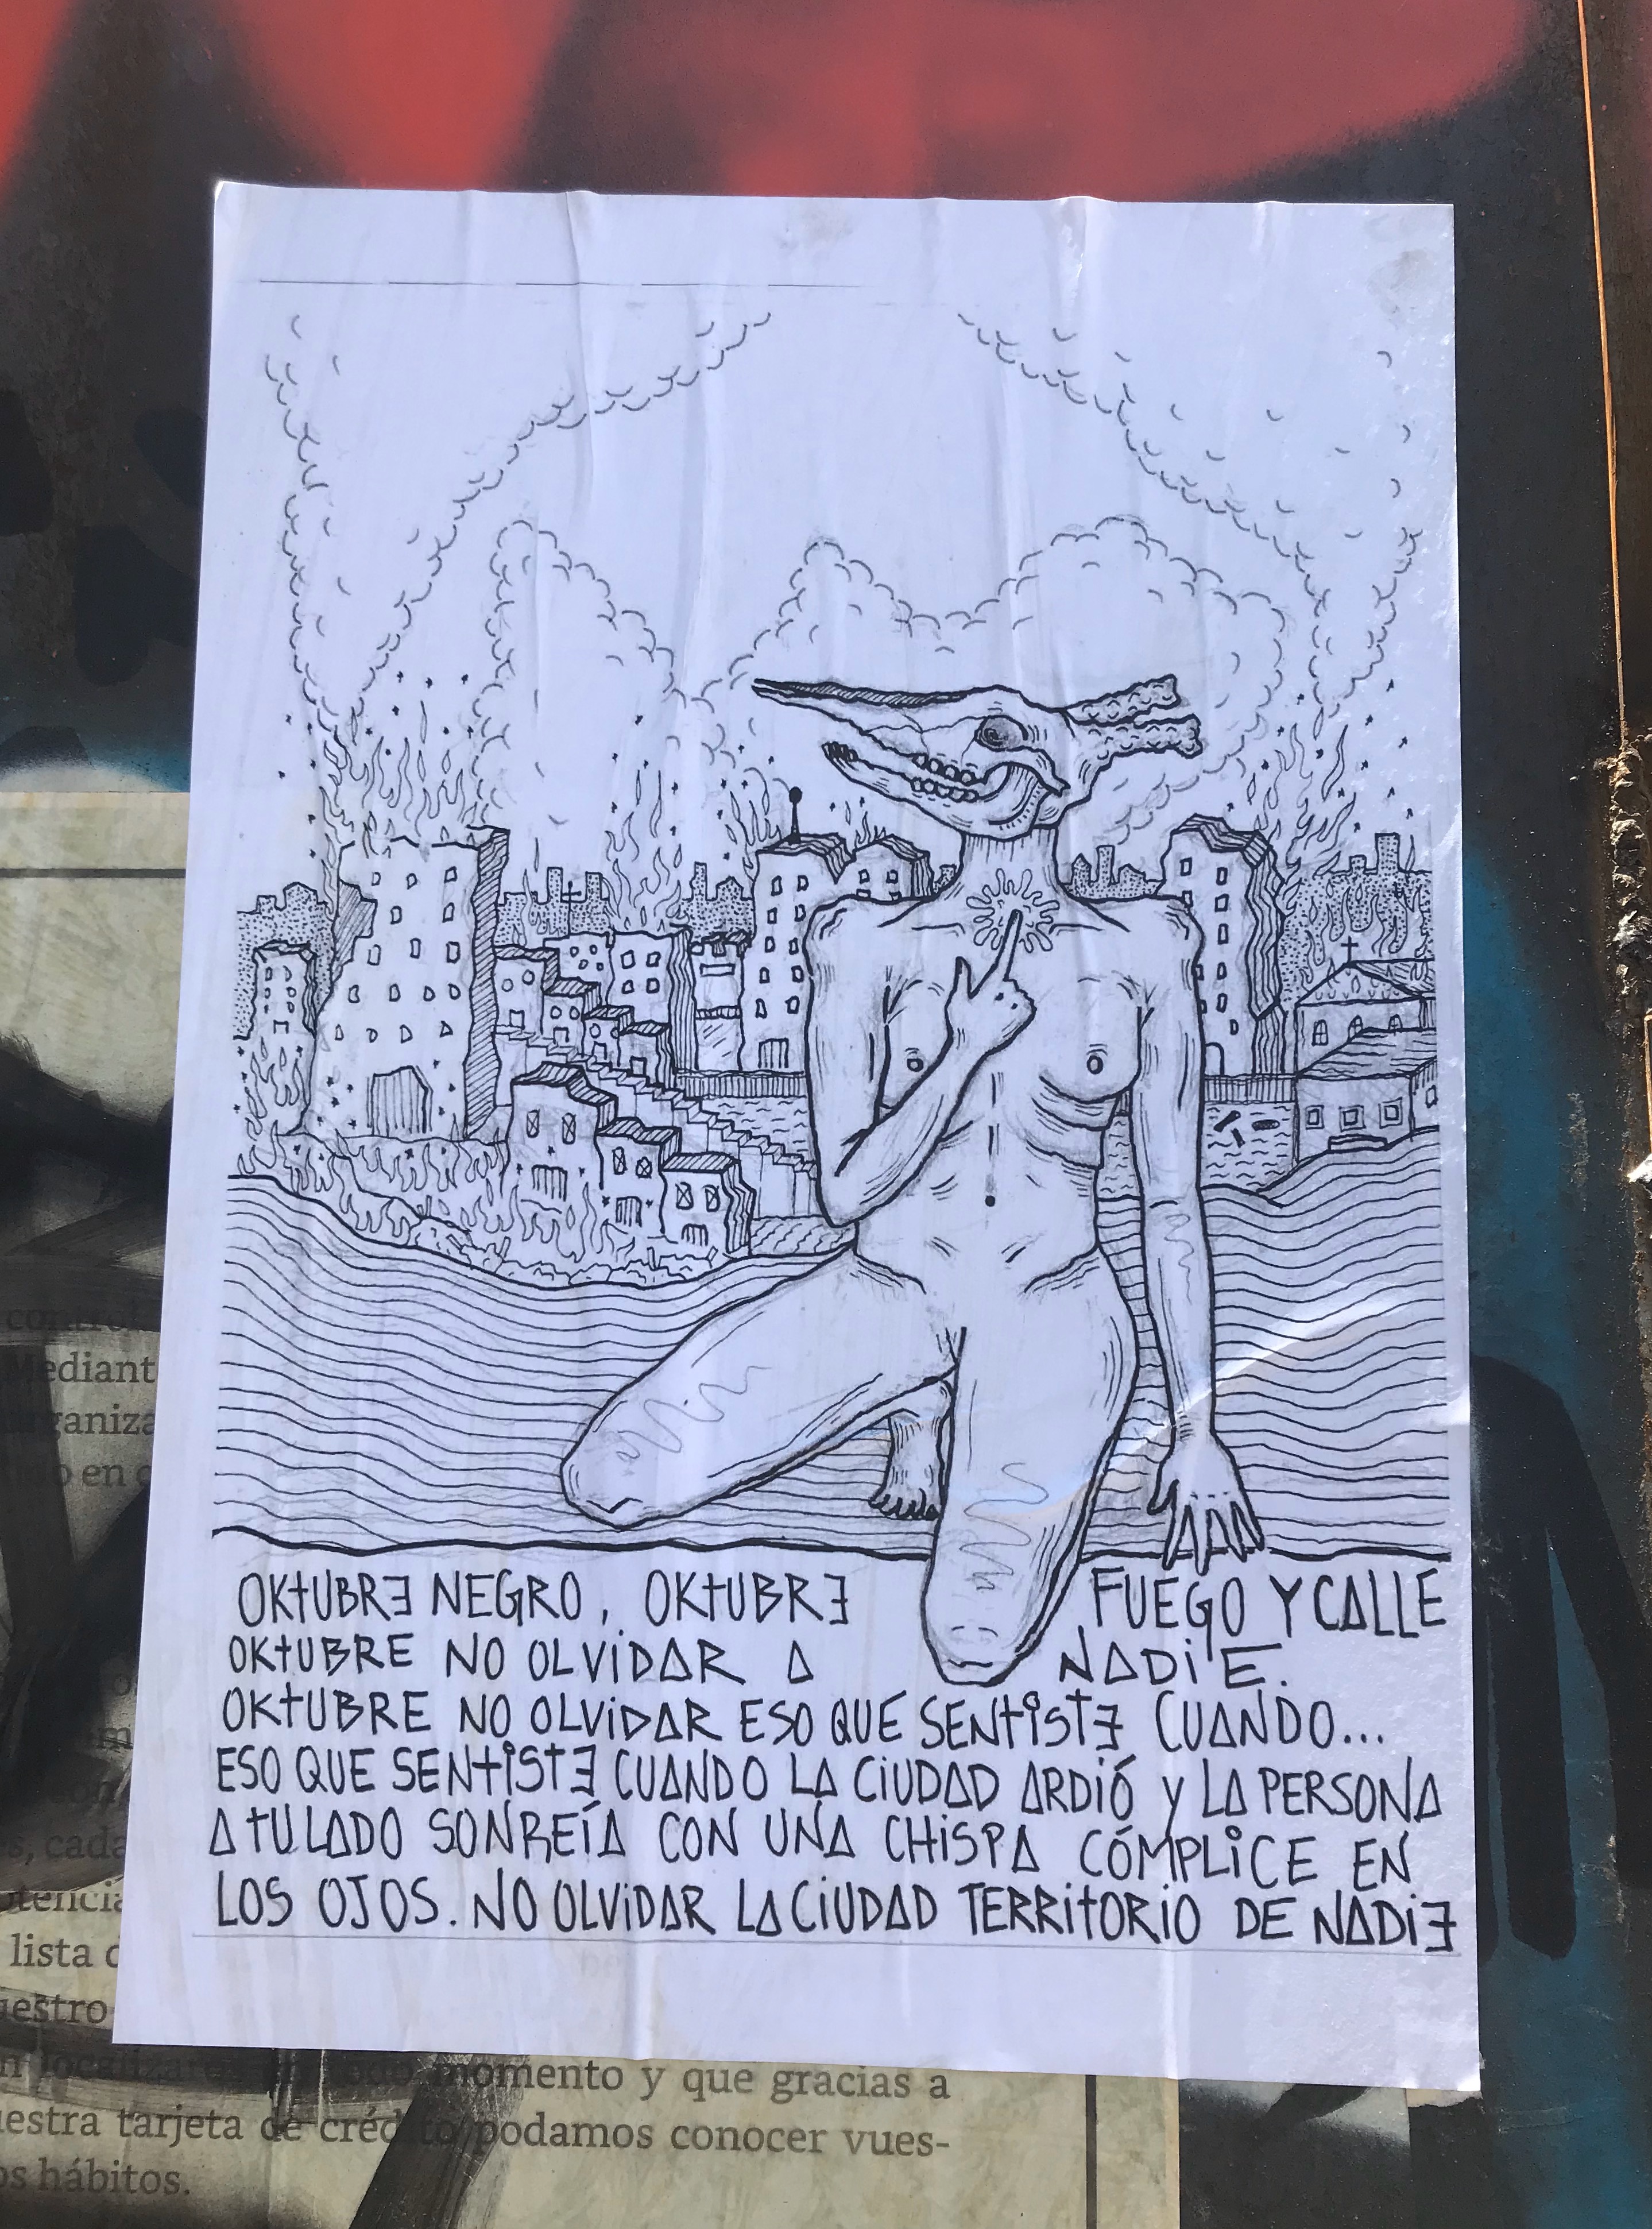 OKTUBRE NEGRO, OKTUBRE FUEGO Y CALLE
OKTUBRE NO OLVIDAR A NADIE.
OKTUBRE NO OLVIDAR ESO QUE SENTISTE CUANDO...
ESO QUE SENTISTE CUANDO LA CIUDAD ARDIÓ Y LA PERSONA
A TU LADO SONREÍA CON UNA CHISPA CÓMPLICE EN
LOS OJOS. NO OLVIDAR LA CIUDAD TERRITORIO DE NADIE
Mediant
en
cada
lista
momento y que gracias a
tarjeta de crédito podamos conocer vues-
hábitos.